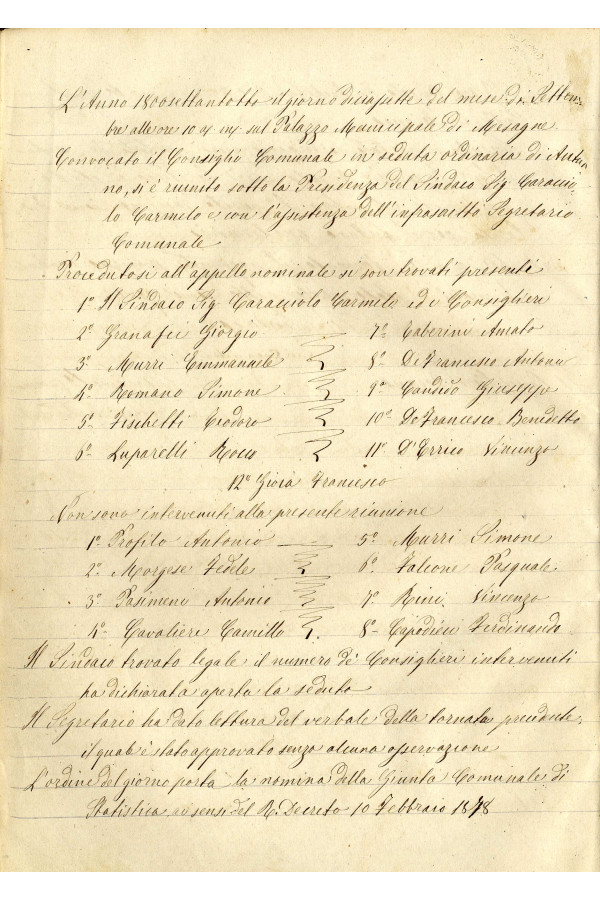 L'Anno 1800settantotto il giorno diciasette del mese di Settem=
bre alle ore 10 sul Palazzo Municipale di Mesagne.
Convocato il Consiglio Comunale in seduta ordinaria di Autun
no, si è riunito sotto la Presidenza del Sindaco Sig. Caraccio
lo Carmelo e con l'assistenza dell'infrascritto Segretario
Comunale
Procedutosi all'appello nominale si son trovati presenti
1º Il Sindaco Sig. Caracciolo Carmelo ed i Consiglieri
2º Granafei Giorgio 7º Caberini Amato
3º Murri Emmanuele 8º De Francesco Antonio
4º Romano Simone 9º Candido Giuseppe
5º Fischetti Teodoro 10º De Francesco Benedetto
6º Luparelli Rocco 11º D'Errico Vincenzo
12º Gioia Francesco
Non sono intervenuti alla presente riunione
1º Profilo Antonio 5º Murri Simone
2º Morgese Fedele 6º Falcone Pasquale
3º Pasimeni Antonio 7º Rini Vincenzo
4º Cavaliere Camillo 8º Capodieci Ferdinando
Il Sindaco trovato legale il numero de' Consiglieri intervenuti
ha dichiarata aperta la seduta
Il Segretario ha dato lettura del verbale della tornata precedente,
il quale è stato approvato senza alcuna osservazione
L'ordine del giorno porta la nomina della Giunta Comunale di
Statistica ai sensi del R. Decreto 10 Febbraio 1878